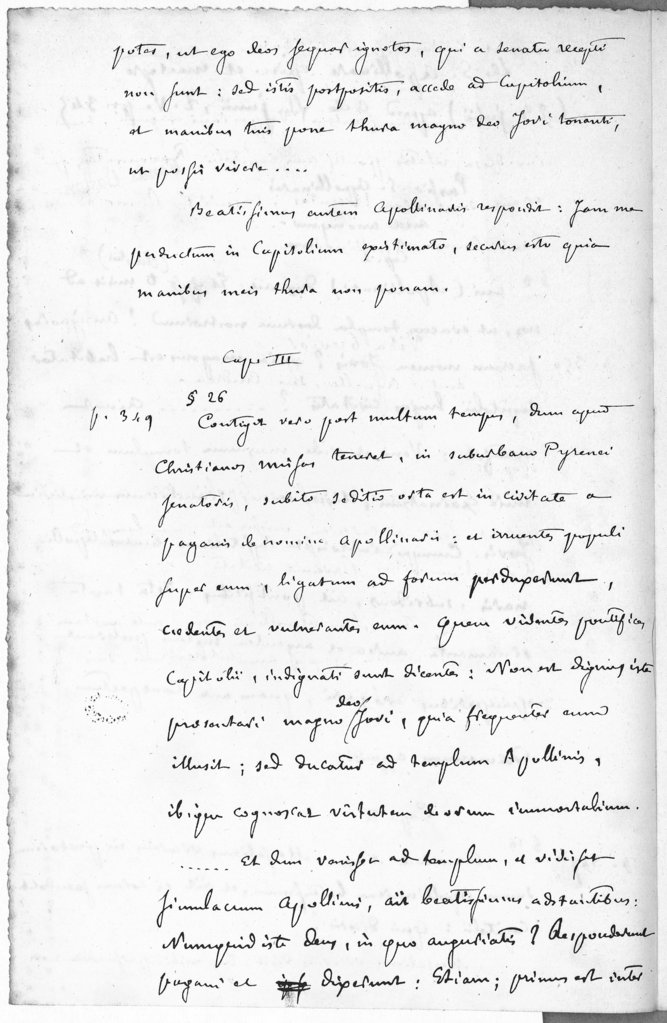 potes, ut ego deos sequar ignotos, qui a senatu recepti
non sunt: sed istis postpositis, accede ad Capitolium,
et manibus tuis pone thura magno deo Jovi tonanti,
ut possis vivere....
Beatissimus autem Apollinaris respondit: Jam me
perductum in Capitolium existimato, securus esto quia
manibus meis thura non ponam.
Cap. III
§ 26
p. 349 Contigit vero post multum tempus, dum apud
Christianos missas teneret, in suburbano Pyrenei
senatoris, subito seditio orta est in civitate a
paganis de nomine Apollinaris: et irruentes populi
super eum, ligatum ad forum perduxerunt,
cædentes et vulnerantes eum. Quem videntes pontifices
Capitolii, indignati sunt dicentes: Non est dignus iste
deo
præsentari magno Jovi, quia frequenter eum
illusit; sed ducatur ad templum Apollinis,
ibique cognoscat virtutem deorum immortalium.
...... Et dum venisset ad templum, et vidisset
simulacrum Apollinis, ait beatissimus adstantibus:
Numquid iste deus, in quo auguriatis? Responderunt
pagani et dixerunt: Etiam; primus est inter